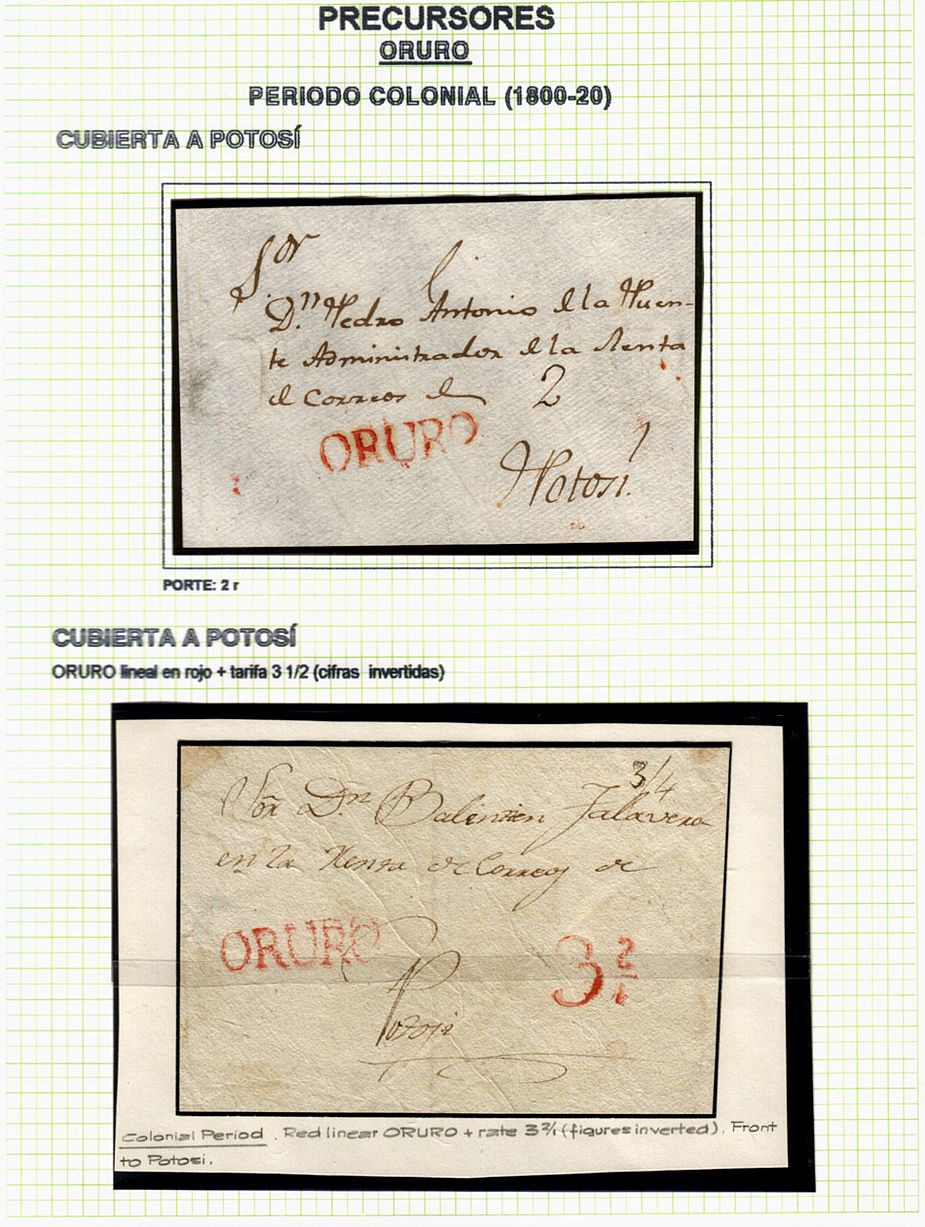 PRECURSORES
ORURO
PERIODO COLONIAL (1800-20)
CUBIERTA A POTOSÍ
Sor
Dn. Pedro Antonio de la Fuen-
te Administrador de la Renta
de Correos de 2
ORURO
Potosi.
PORTE: 2 r
CUBIERTA A POTOSÍ
ORURO lineal en rojo + tarifa 3 1/2 (cifras invertidas)
3/4
Sor Dn Talavera
en la Renta de Correos de
ORURO
3 2/1
Potosi
Colonial Period. Red linear ORURO + rate 3 2/1 (figures inverted). Front
to Potosi.